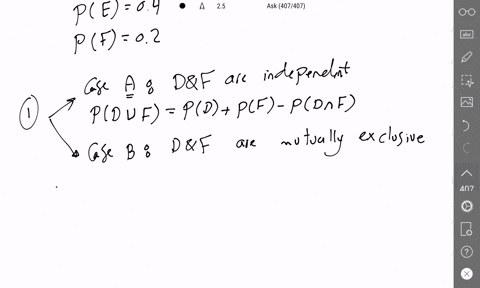 P(E) = 0.4
• Δ 2.5 Ask (407/407)
P(F) = 0.2
Case A : D&F are independent
① P(D ∪ F) = P(D) + P(F) - P(D∩F)
Case B : D&F are mutually exclusive